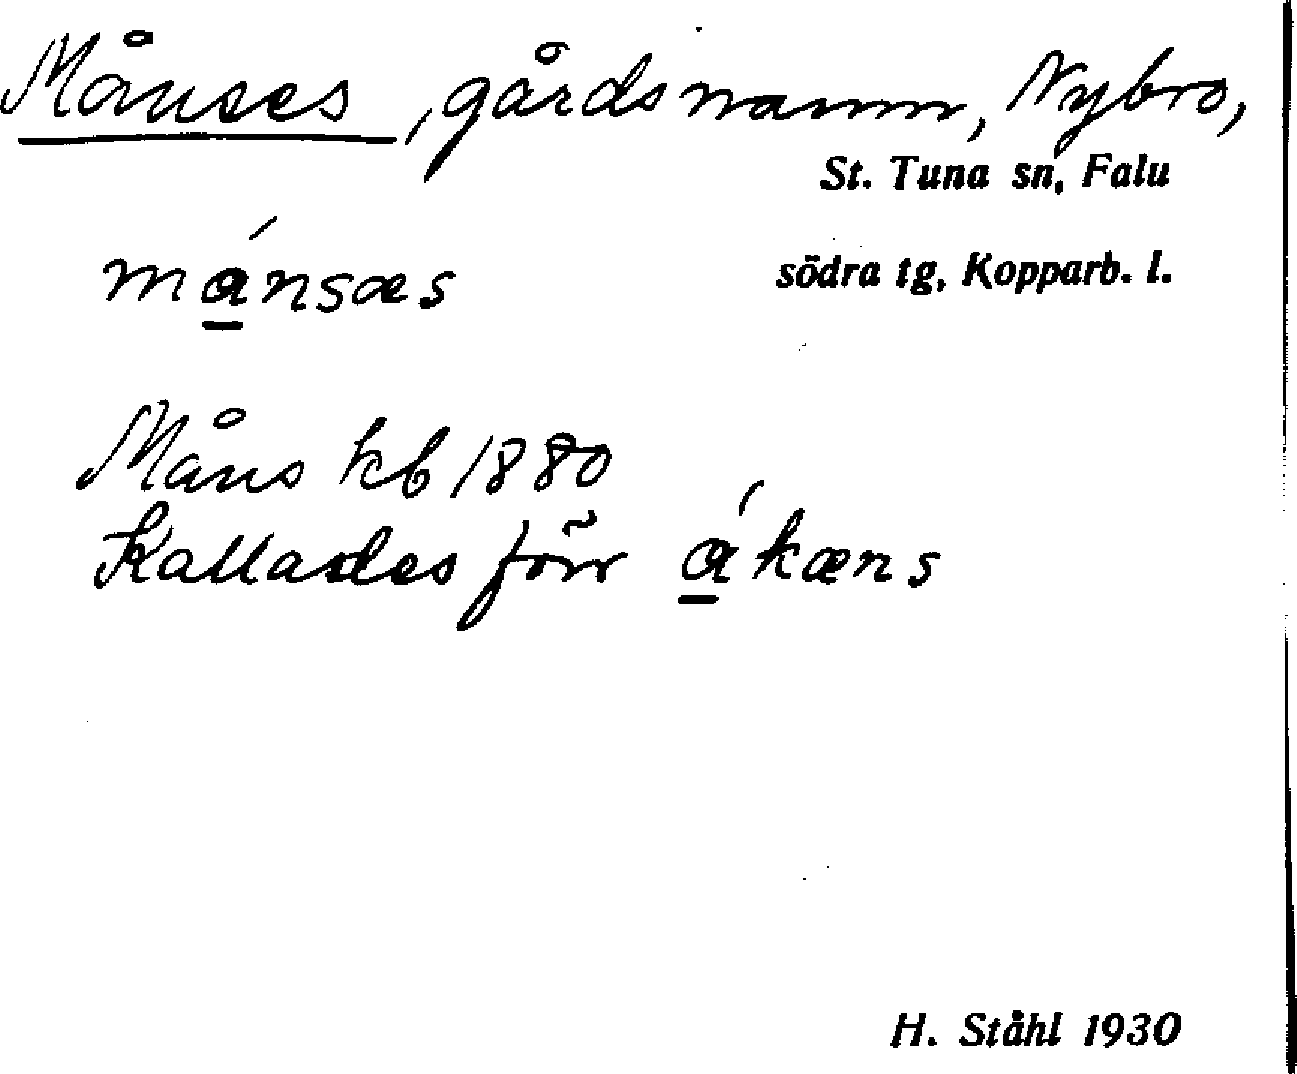 Månses, gårdsnamn, Nybro,
St. Tuna sn, Falu
södra tg, Kopparb. l.
mǻ̱nsæs
Måns kb 1880
Kallades förr á̱kæns
H. Ståhl 1930